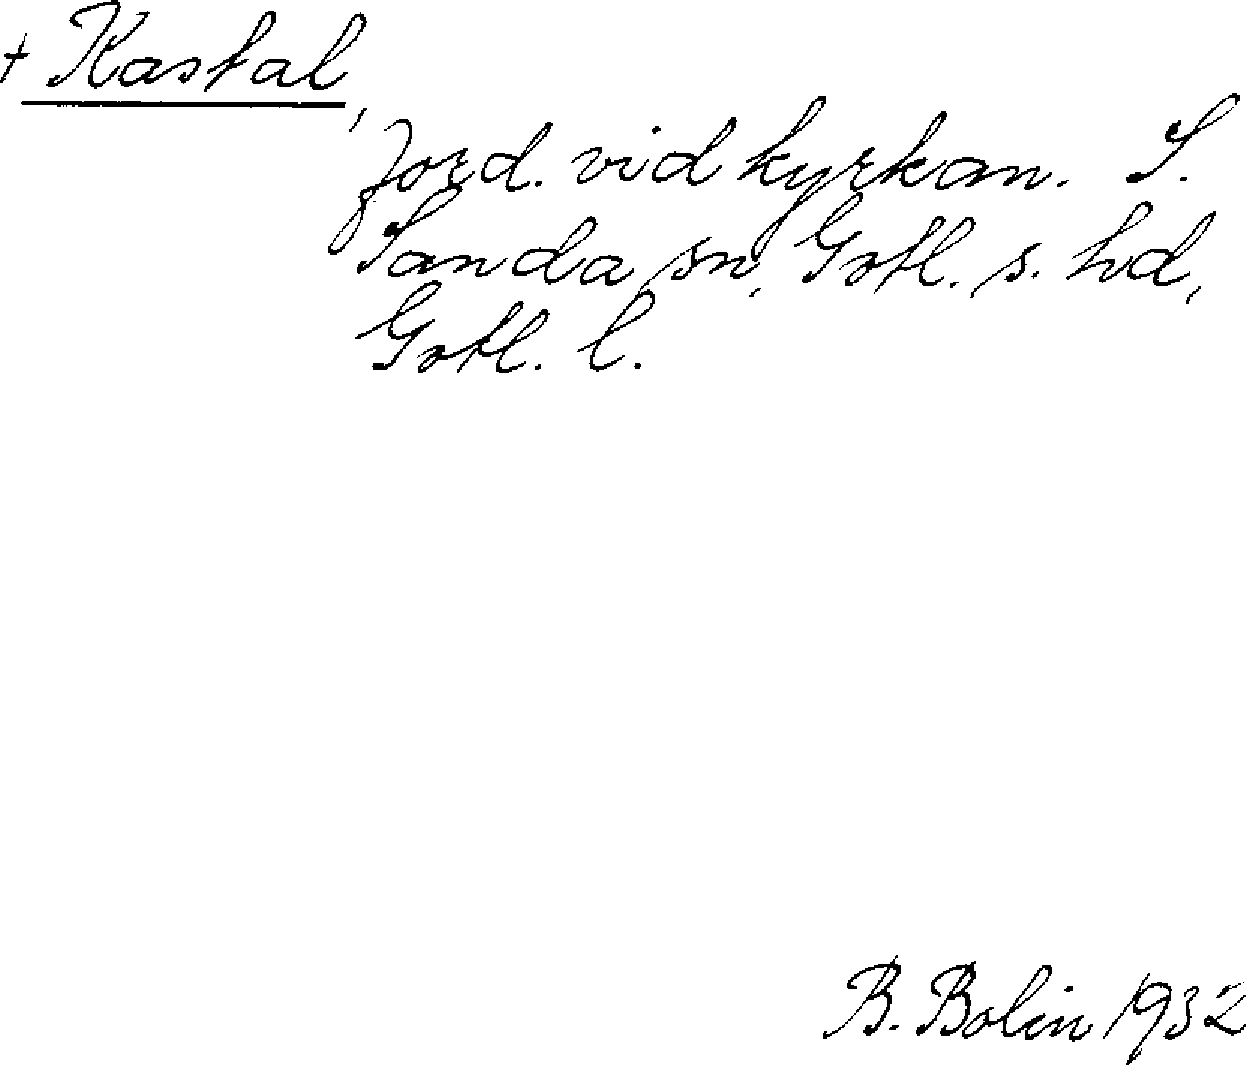 + Kastal,
ford. vid kyrkan. S.
Sanda sn, Gotl. s. hd,
Gotl. l.
B. Bolin 1932